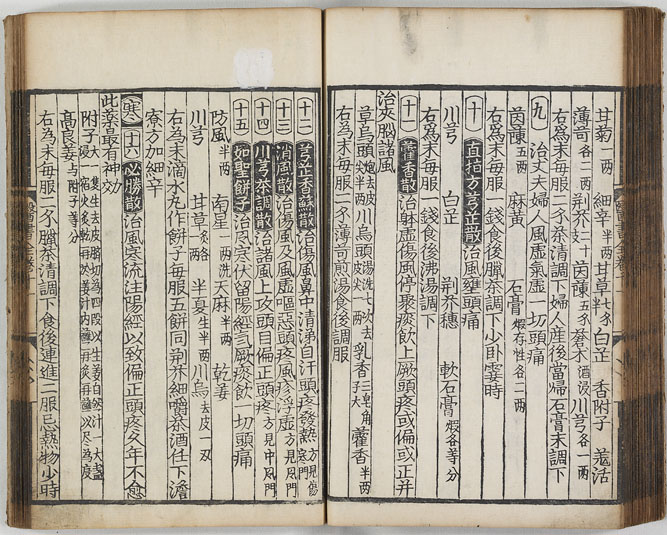 甘菊一两 細辛半两 甘草七分 白芷 香附子 羗活
薄苛各二两 荆芥 茵蔯五分 蒼术酒浸 川芎各一两
右爲末每服二分茶清調下婦人産後當帰石膏末調下
九 治丈夫婦人風虚氣虚一切頭痛
茵蔯五两 麻黄 石膏煆存性各二两
右爲末每服一錢食後臘茶調下少卧霎時
十 直指方芎芷散治風壅頭痛
川芎 白芷 荆芥穗 軟石膏煆各等分
右爲末每服一錢食後沸湯調下
十一 藿香散治躰虚傷風停聚痰飲上厥頭疼或偏或正并
治夾腦諸風
草烏頭炮去皮 川烏頭湯洗七次去皮尖一两 乳香三皂角子大 藿香半两
右为末每服二分薄苛煎湯食後調服
十二 芎芷香蘇散治傷風鼻中清涕自汗頭疼發熱方見傷寒門
十三 消風散治傷風及風虚嘔惡頭疼風疹浮虚方見風門
十四 川芎茶調散治諸風上攻頭目偏正頭疼方見中風門
十五 如聖餅子治风寒伏留陽經言厥痰飲一切頭痛
防風半两 南星一两洗 天麻半两 乾姜
川芎 甘草炙各 半夏生半两 川烏去皮一
右为末滴水丸作餅子每服五餅同荆芥細嚼茶酒任下澹
寮方加細辛
寒 十六 必勝散治風寒流注陽經以致偏正頭疼久年不愈
此藥最有神功
附子大 生去皮臍切为四段以生姜自然汁一大盞浸
高良姜与附子等分
右为末每服二分臘茶清調下食後連進二服忌熱物少時